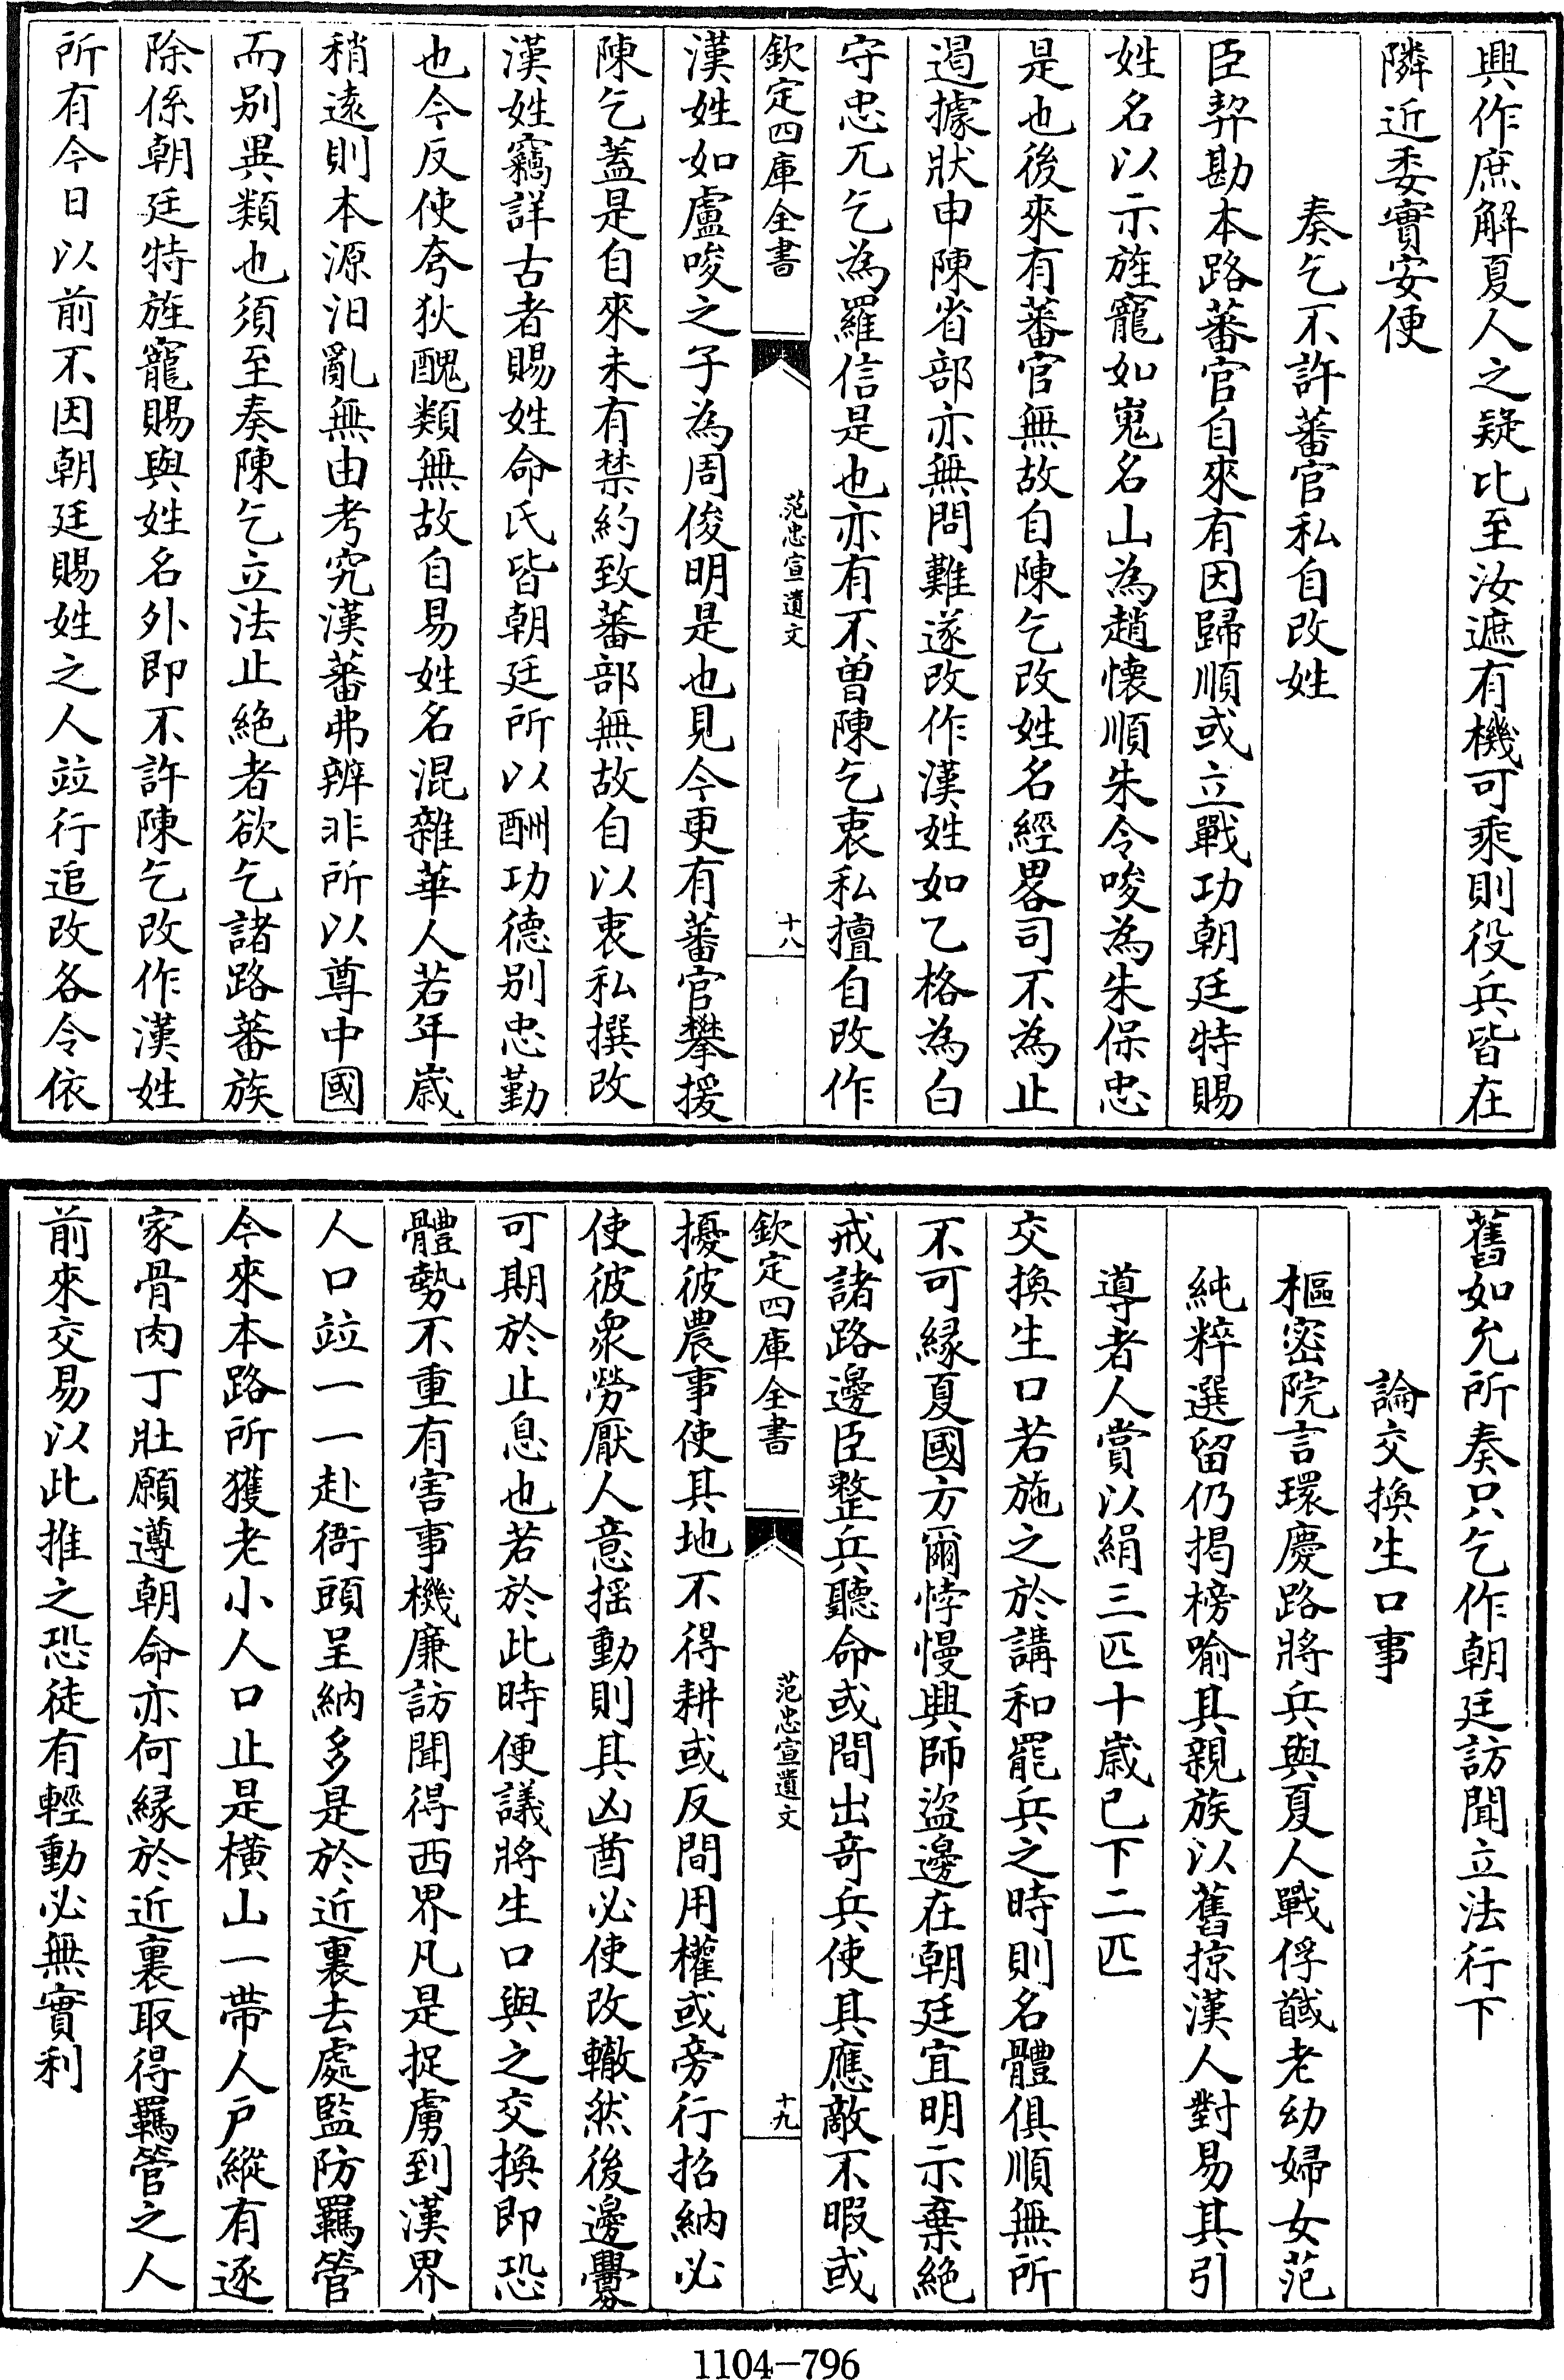 興作庶解夏人之疑比至汝遮有機可乘則役兵皆在
隣近委實安便
奏乞不許蕃官私自改姓
臣契勘本路蕃官自來有因歸順或立戰功朝廷特賜
姓名以示旌寵如嵬名山為趙懐順朱令唆為朱保忠
是也後來有蕃官無故自陳乞改姓名經畧司不為止
遏據狀申陳省部亦無問難遂改作漢姓如乙格為白
守忠兀乞為羅信是也亦有不曽陳乞衷私擅自改作
欽定四庫全書
范忠宣遺文
十八
漢姓如盧唆之子為周俊明是也見今更有蕃官攀援
陳乞蓋是自來未有禁約致蕃部無故自以衷私撰改
漢姓竊詳古者賜姓命氏皆朝廷所以酬功德别忠勤
也今反使夸狄醜類無故自易姓名混雜華人若年歳
稍遠則本源汨亂無由考究漢蕃弗辨非所以尊中國
而别異類也須至奏陳乞立法止絶者欲乞諸路蕃族
除係朝廷特旌寵賜與姓名外即不許陳乞改作漢姓
所有今日以前不因朝廷賜姓之人竝行追改各令依
舊如允所奏只乞作朝廷訪聞立法行下
論交換生口事
樞密院言環慶路將兵與夏人戰俘馘老幼婦女范
純粹選留仍掲榜喻其親族以舊掠漢人對易其引
導者人賞以絹三匹十歳已下二匹
交換生口若施之於講和罷兵之時則名體俱順無所
不可縁夏國方爾悖慢興師盜邊在朝廷宜明示棄絶
戒諸路邊臣整兵聽命或間出奇兵使其應敵不暇或
欽定四庫全書
范忠宣遺文
十九
擾彼農事使其地不得耕或反間用權或旁行招納必
使彼衆勞厭人意揺動則其凶酋必使改轍然後邊釁
可期於止息也若於此時便議將生口與之交換即恐
體勢不重有害事機廉訪聞得西界凡是捉虜到漢界
人口竝一一赴衙頭呈納多是於近裏去處監防羈管
今來本路所獲老小人口止是横山一帶人戶縱有逐
家骨肉丁壯願遵朝命亦何縁於近裏取得羈管之人
前來交易以此推之恐徒有輕動必無實利
1104-796